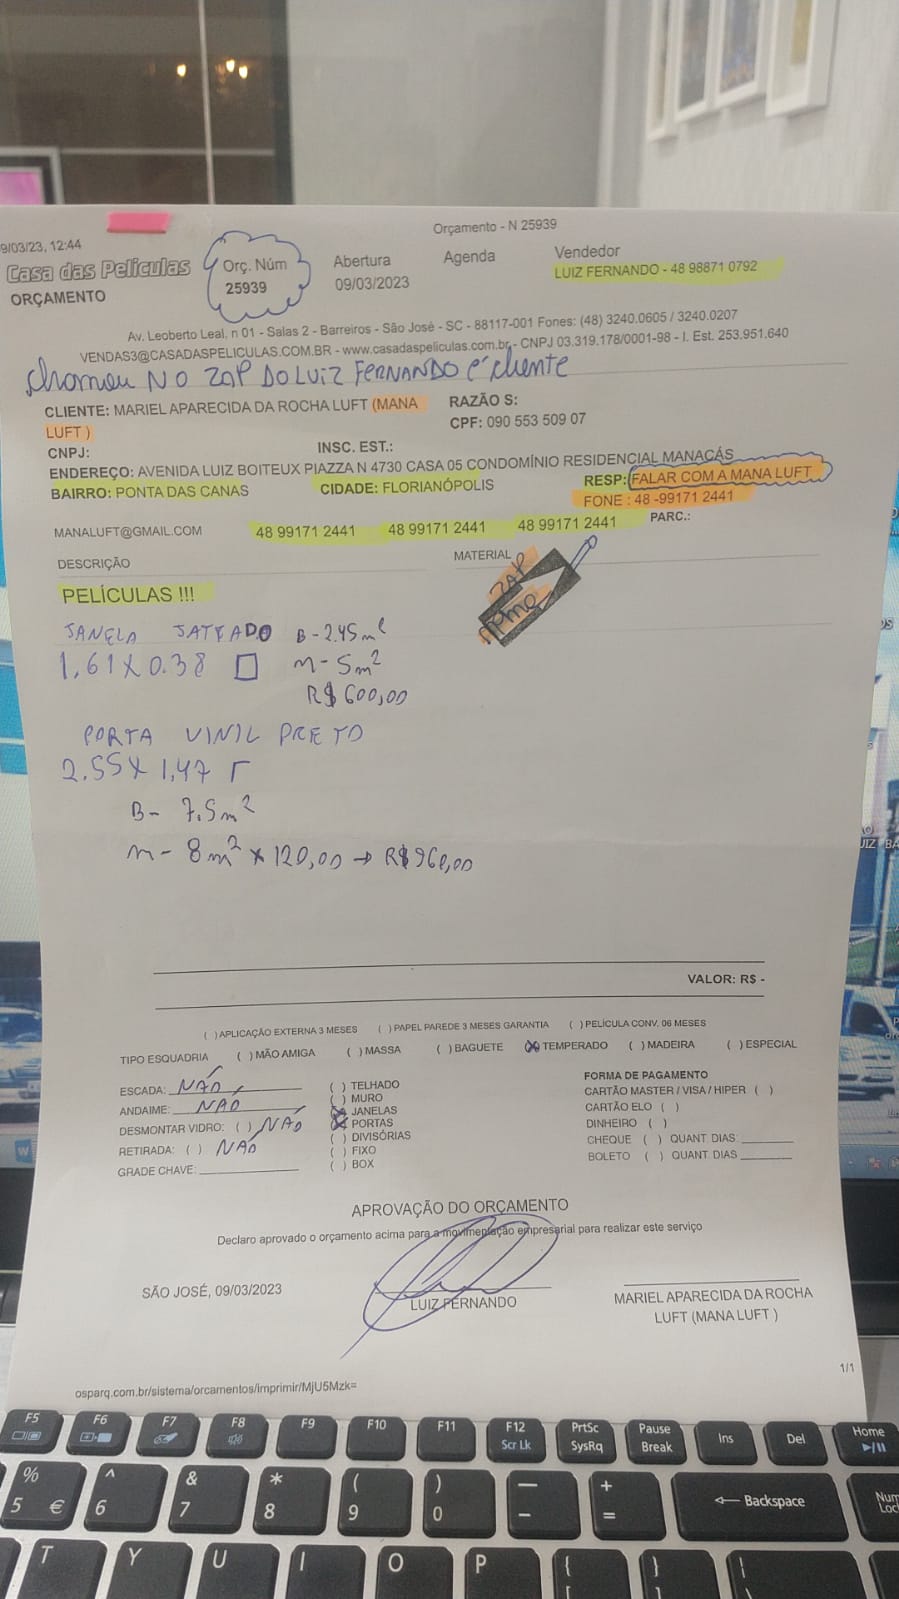 9/03/23, 12:44
Orçamento - N 25939
Casa das Películas
ORÇAMENTO
Orç. Núm
25939
Abertura
09/03/2023
Agenda
Vendedor
LUIZ FERNANDO - 48 98871 0792
Av. Leoberto Leal, n 01 - Salas 2 - Barreiros - São José - SC - 88117-001 Fones: (48) 3240.0605 / 3240.0207
VENDAS3@CASADASPELICULAS.COM.BR - www.casadaspeliculas.com.br - CNPJ 03.319.178/0001-98 - I. Est. 253.951.640
Chamou NO ZAP DO LUIZ FERNANDO é cliente
CLIENTE: MARIEL APARECIDA DA ROCHA LUFT (MANA
LUFT )
RAZÃO S:
CPF: 090 553 509 07
CNPJ:
INSC. EST.:
ENDEREÇO: AVENIDA LUIZ BOITEUX PIAZZA N 4730 CASA 05 CONDOMÍNIO RESIDENCIAL MANACÁS
BAIRRO: PONTA DAS CANAS
CIDADE: FLORIANÓPOLIS
RESP: FALAR COM A MANA LUFT
FONE : 48 -99171 2441
MANALUFT@GMAIL.COM
48 99171 2441
48 99171 2441
48 99171 2441
PARC.:
DESCRIÇÃO
MATERIAL
ZAP
PELÍCULAS !!!
JANELA JATEADO B - 2.45 m²
1,61 X 0.38 m - 5m²
R$ 600,00
PORTA VINIL PRETO
2.55 X 1,47
B - 7.5m²
m - 8m² x 120,00 → R$ 960,00
VALOR: R$ -
( ) APLICAÇÃO EXTERNA 3 MESES ( ) PAPEL PAREDE 3 MESES GARANTIA ( ) PELÍCULA CONV. 06 MESES
TIPO ESQUADRIA ( ) MÃO AMIGA ( ) MASSA ( ) BAGUETE (X) TEMPERADO ( ) MADEIRA ( ) ESPECIAL
ESCADA: NÃO
ANDAIME: NÃO
DESMONTAR VIDRO: ( ) NÃO
RETIRADA: ( ) NÃO
GRADE CHAVE:
( ) TELHADO
( ) MURO
(X) JANELAS
(X) PORTAS
( ) DIVISÓRIAS
( ) FIXO
( ) BOX
FORMA DE PAGAMENTO
CARTÃO MASTER / VISA / HIPER ( )
CARTÃO ELO ( )
DINHEIRO ( )
CHEQUE ( ) QUANT. DIAS:
BOLETO ( ) QUANT. DIAS
APROVAÇÃO DO ORÇAMENTO
Declaro aprovado o orçamento acima para a movimentação empresarial para realizar este serviço
SÃO JOSÉ, 09/03/2023
LUIZ FERNANDO
MARIEL APARECIDA DA ROCHA
LUFT (MANA LUFT )
1/1
osparq.com.br/sistema/orcamentos/imprimir/MjU5Mzk=
F5 F6 F7 F8 F9 F10 F11 F12 Scr Lk PrtSc SysRq Pause Break Ins Del Home
% 5 € ^ 6 & 7 * 8 ( 9 ) 0 — - + = Backspace Num Loc
T Y U I O P { [ } ] |